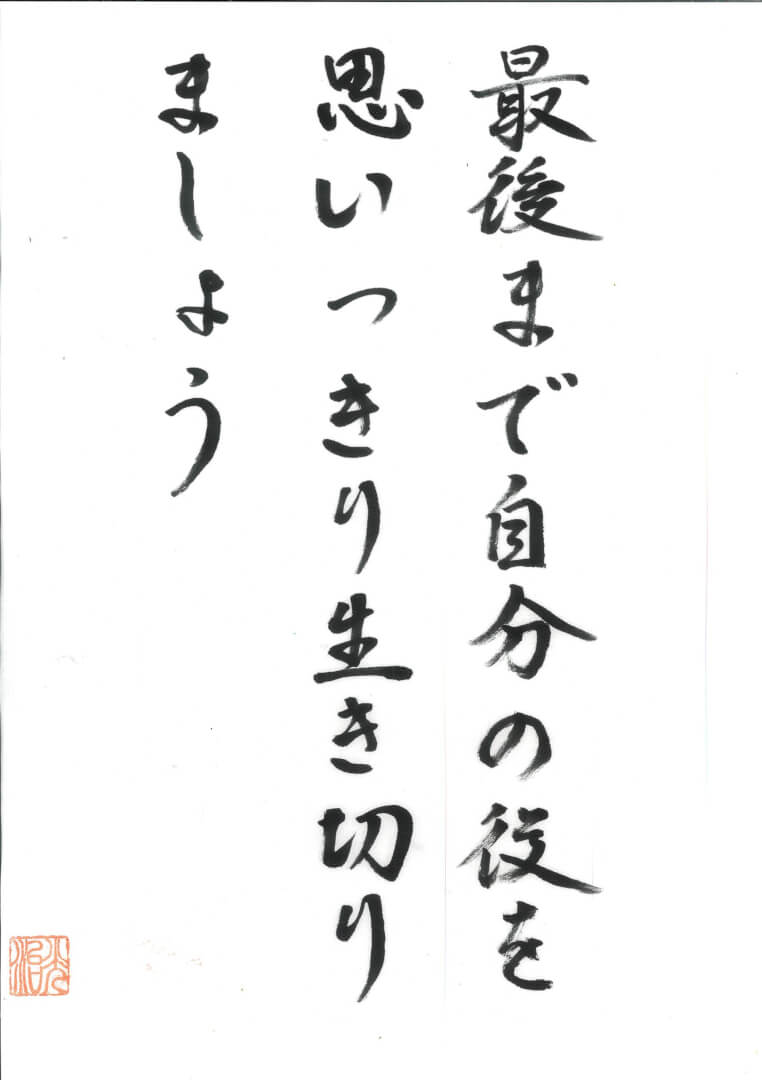 最後まで自分の役を
思いっきり生き切り
ましょう